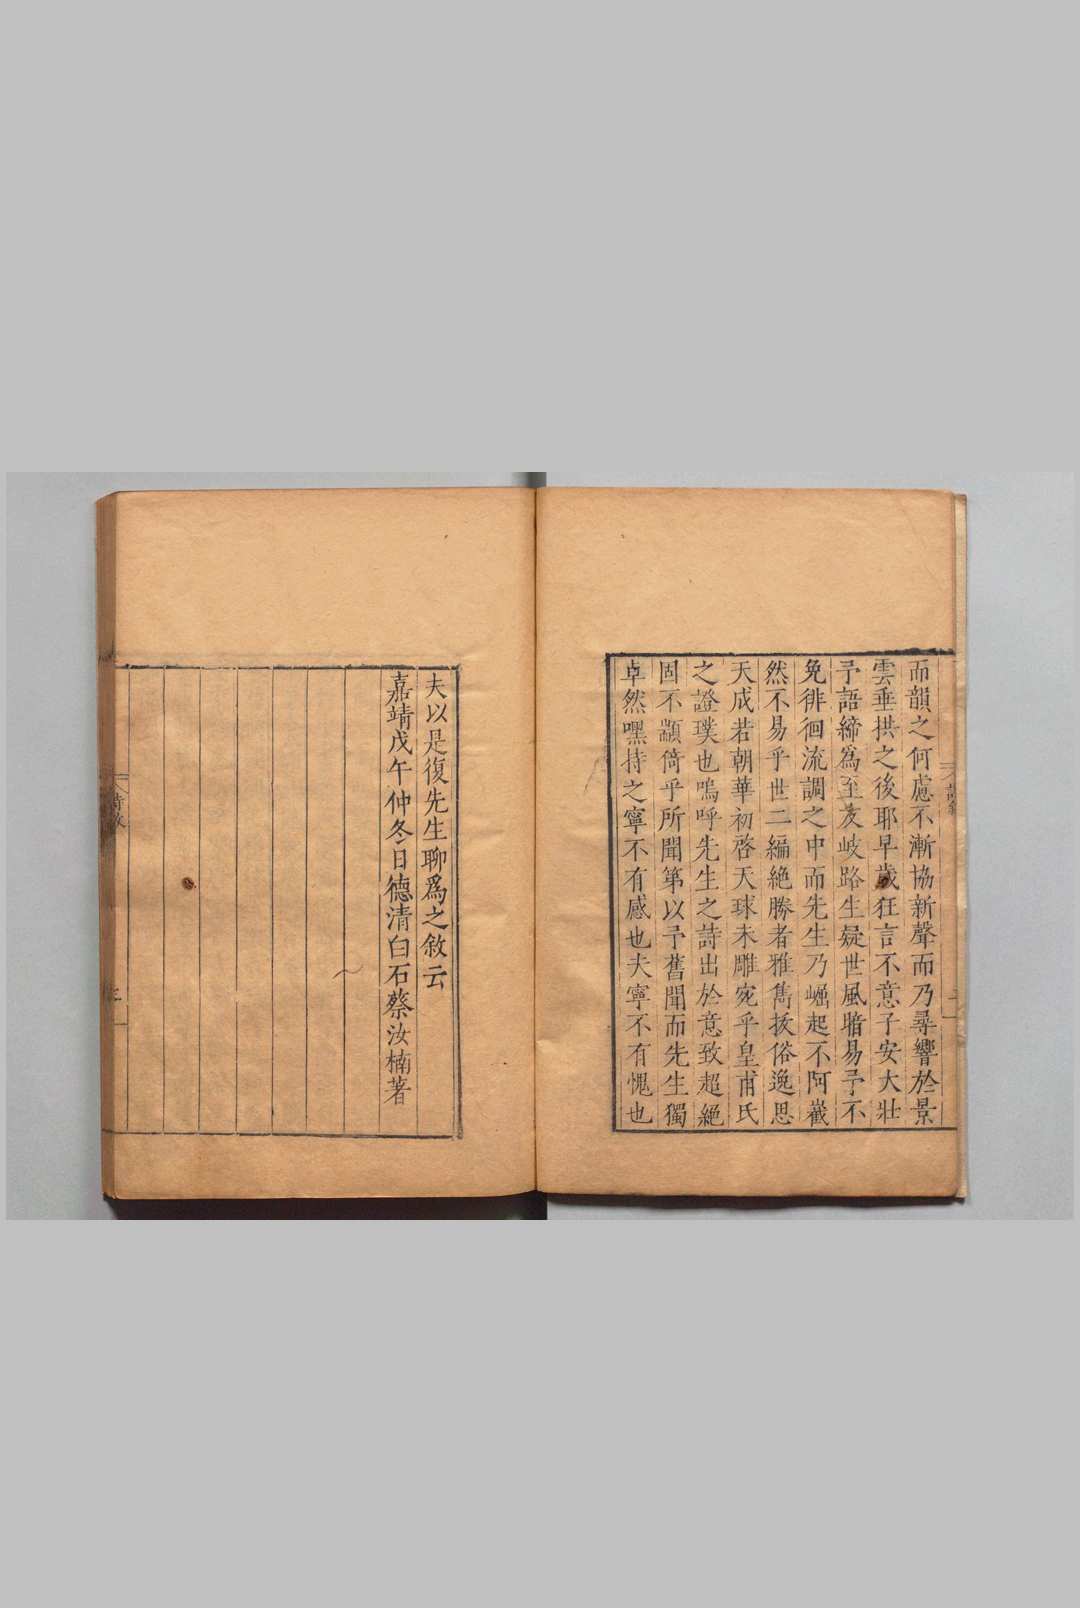 而韻之何慮不漸協新聲而乃尋響於景
雲垂拱之後耶早歲狂言不意子安大壯
予語締爲至友岐路生疑世風暗易予不
免徘徊流調之中而先生乃崛起不阿巀
然不易乎世二編絶勝者雅雋拔俗逸思
天成若朝華初啓天球未雕宛乎皇甫氏
之證璞也嗚呼先生之詩出於意致超絶
固不顓倚乎所聞第以予舊聞而先生獨
卓然嘿持之寧不有感也夫寧不有愧也
夫以是復先生聊爲之敘云
嘉靖戊午仲冬日德清白石蔡汝楠著